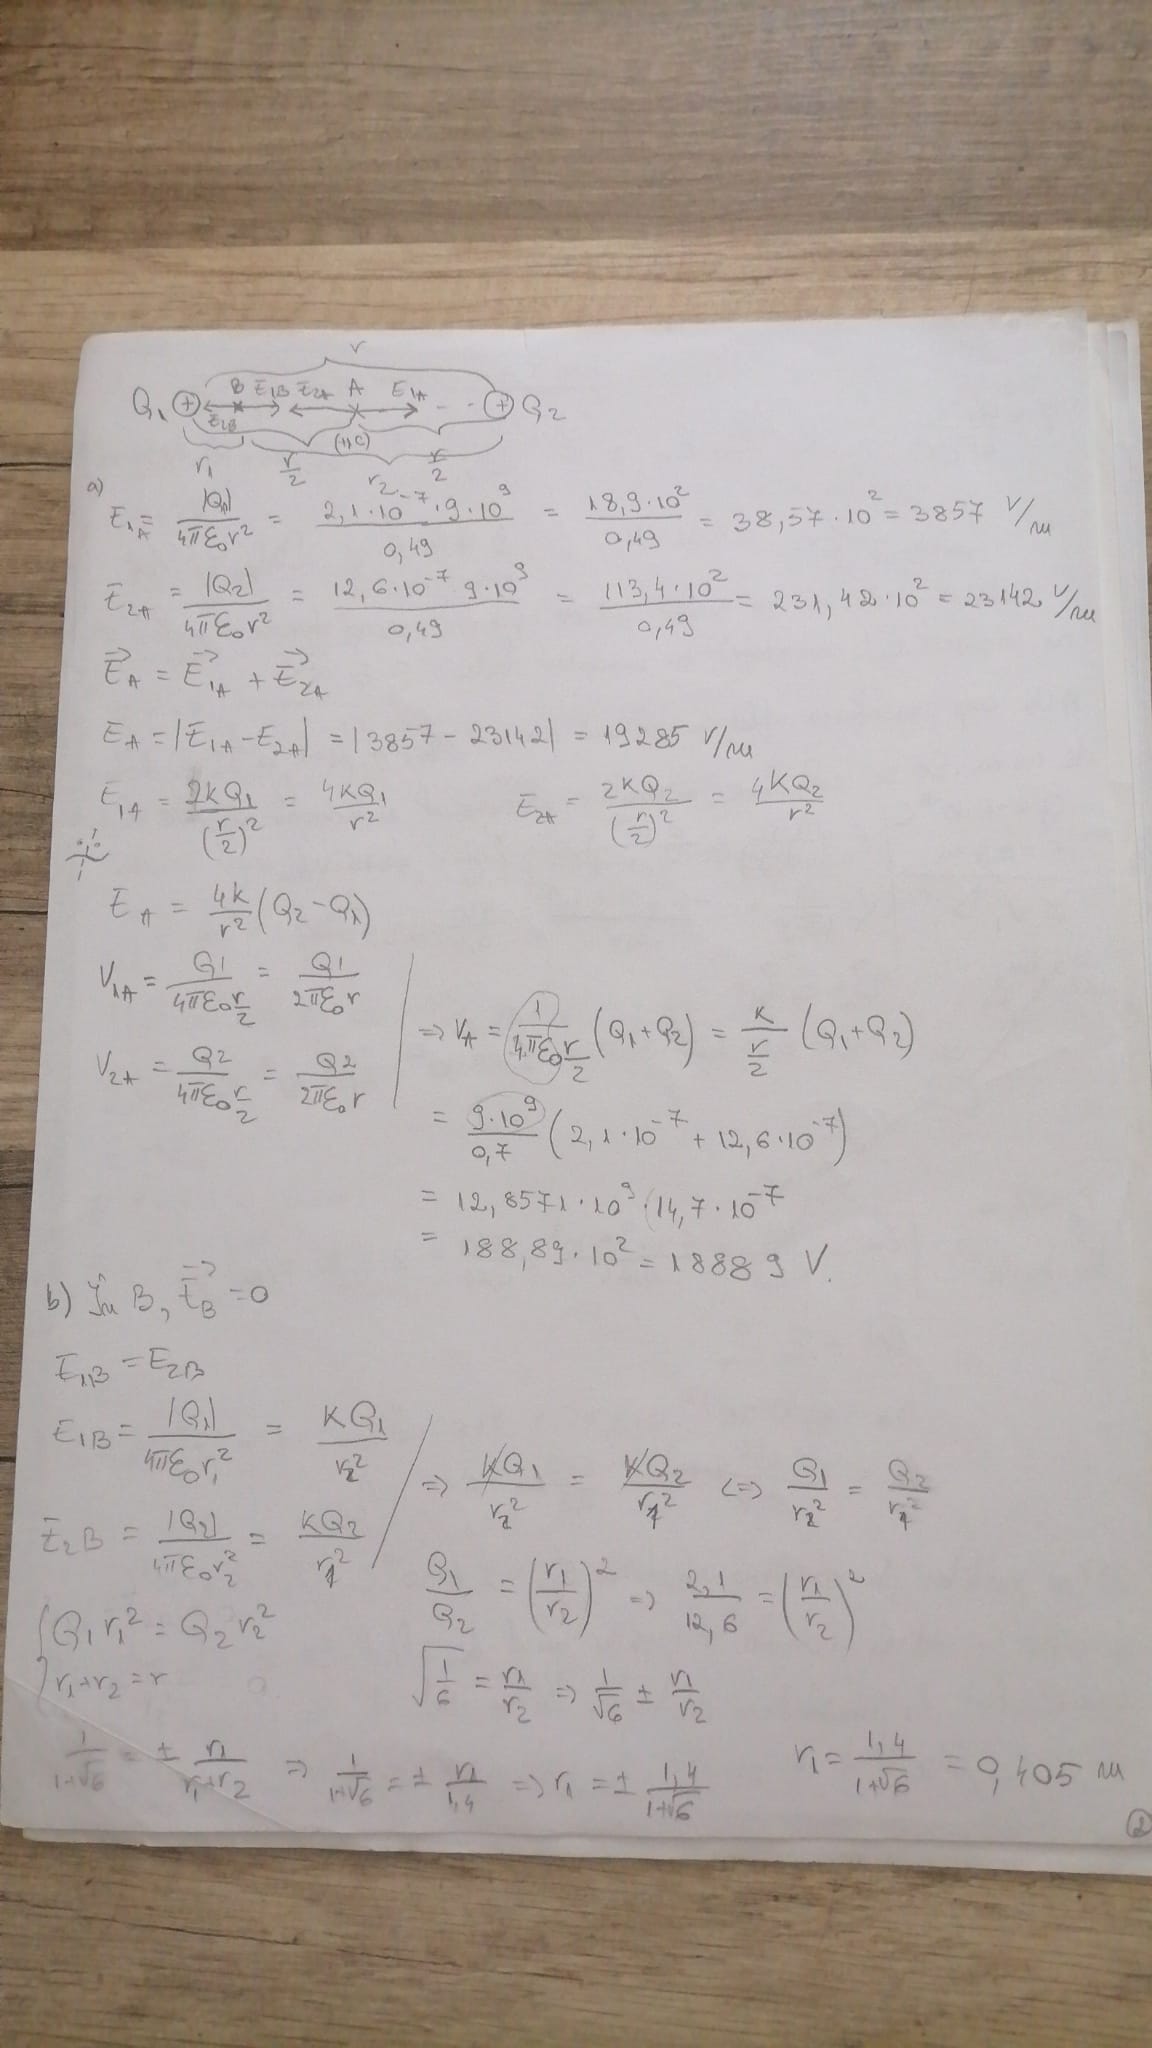 r
Q1 + B E1B E2A A E1A + Q2
E2B (≡C)
r1 r/2 r2 r/2
a) E1A = |Q1|/4πε0r² = 2,1·10⁻⁷·9·10⁹/0,49 = 18,9·10²/0,49 = 38,57·10² = 3857 V/m
E2A = |Q2|/4πε0r² = 12,6·10⁻⁷ 9·10⁹/0,49 = 113,4·10²/0,49 = 231,42·10² = 23142 V/m
E⃗A = E⃗1A + E⃗2A
EA = |E1A - E2A| = |3857 - 23142| = 19285 V/m
E1A = 2kQ1/(r/2)² = 4kQ1/r² E2A = 2kQ2/(r/2)² = 4kQ2/r²
EA = 4k/r² (Q2 - Q1)
V1A = Q1/4πε0 r/2 = Q1/2πε0r
V2A = Q2/4πε0 r/2 = Q2/2πε0r
=> VA = 1/4πε0 r/2 (Q1 + Q2) = k/(r/2) (Q1 + Q2)
= 9·10⁹/0,7 (2,1·10⁻⁷ + 12,6·10⁻⁷)
= 12,8571·10⁹·(14,7·10⁻⁷
= 188,89·10² = 18889 V.
b) În B, E⃗B = 0
E1B = E2B
E1B = |Q1|/4πε0r1² = kQ1/r²
E2B = |Q2|/4πε0r2² = kQ2/r²
=> kQ1/r² = kQ2/r² <=> Q1/r² = Q2/r²
{ Q1r1² = Q2r2²
r1+r2 = r
Q1/Q2 = (r1/r2)² => 2,1/12,6 = (r1/r2)²
√1/6 = r1/r2 => 1/√6 ± r1/r2
1/1+√6 = ± r1/r1+r2 => 1/1+√6 = ± r1/1,4 => r1 = ± 1,4/1+√6
r1 = 1,4/1+√6 = 0,405 m
2